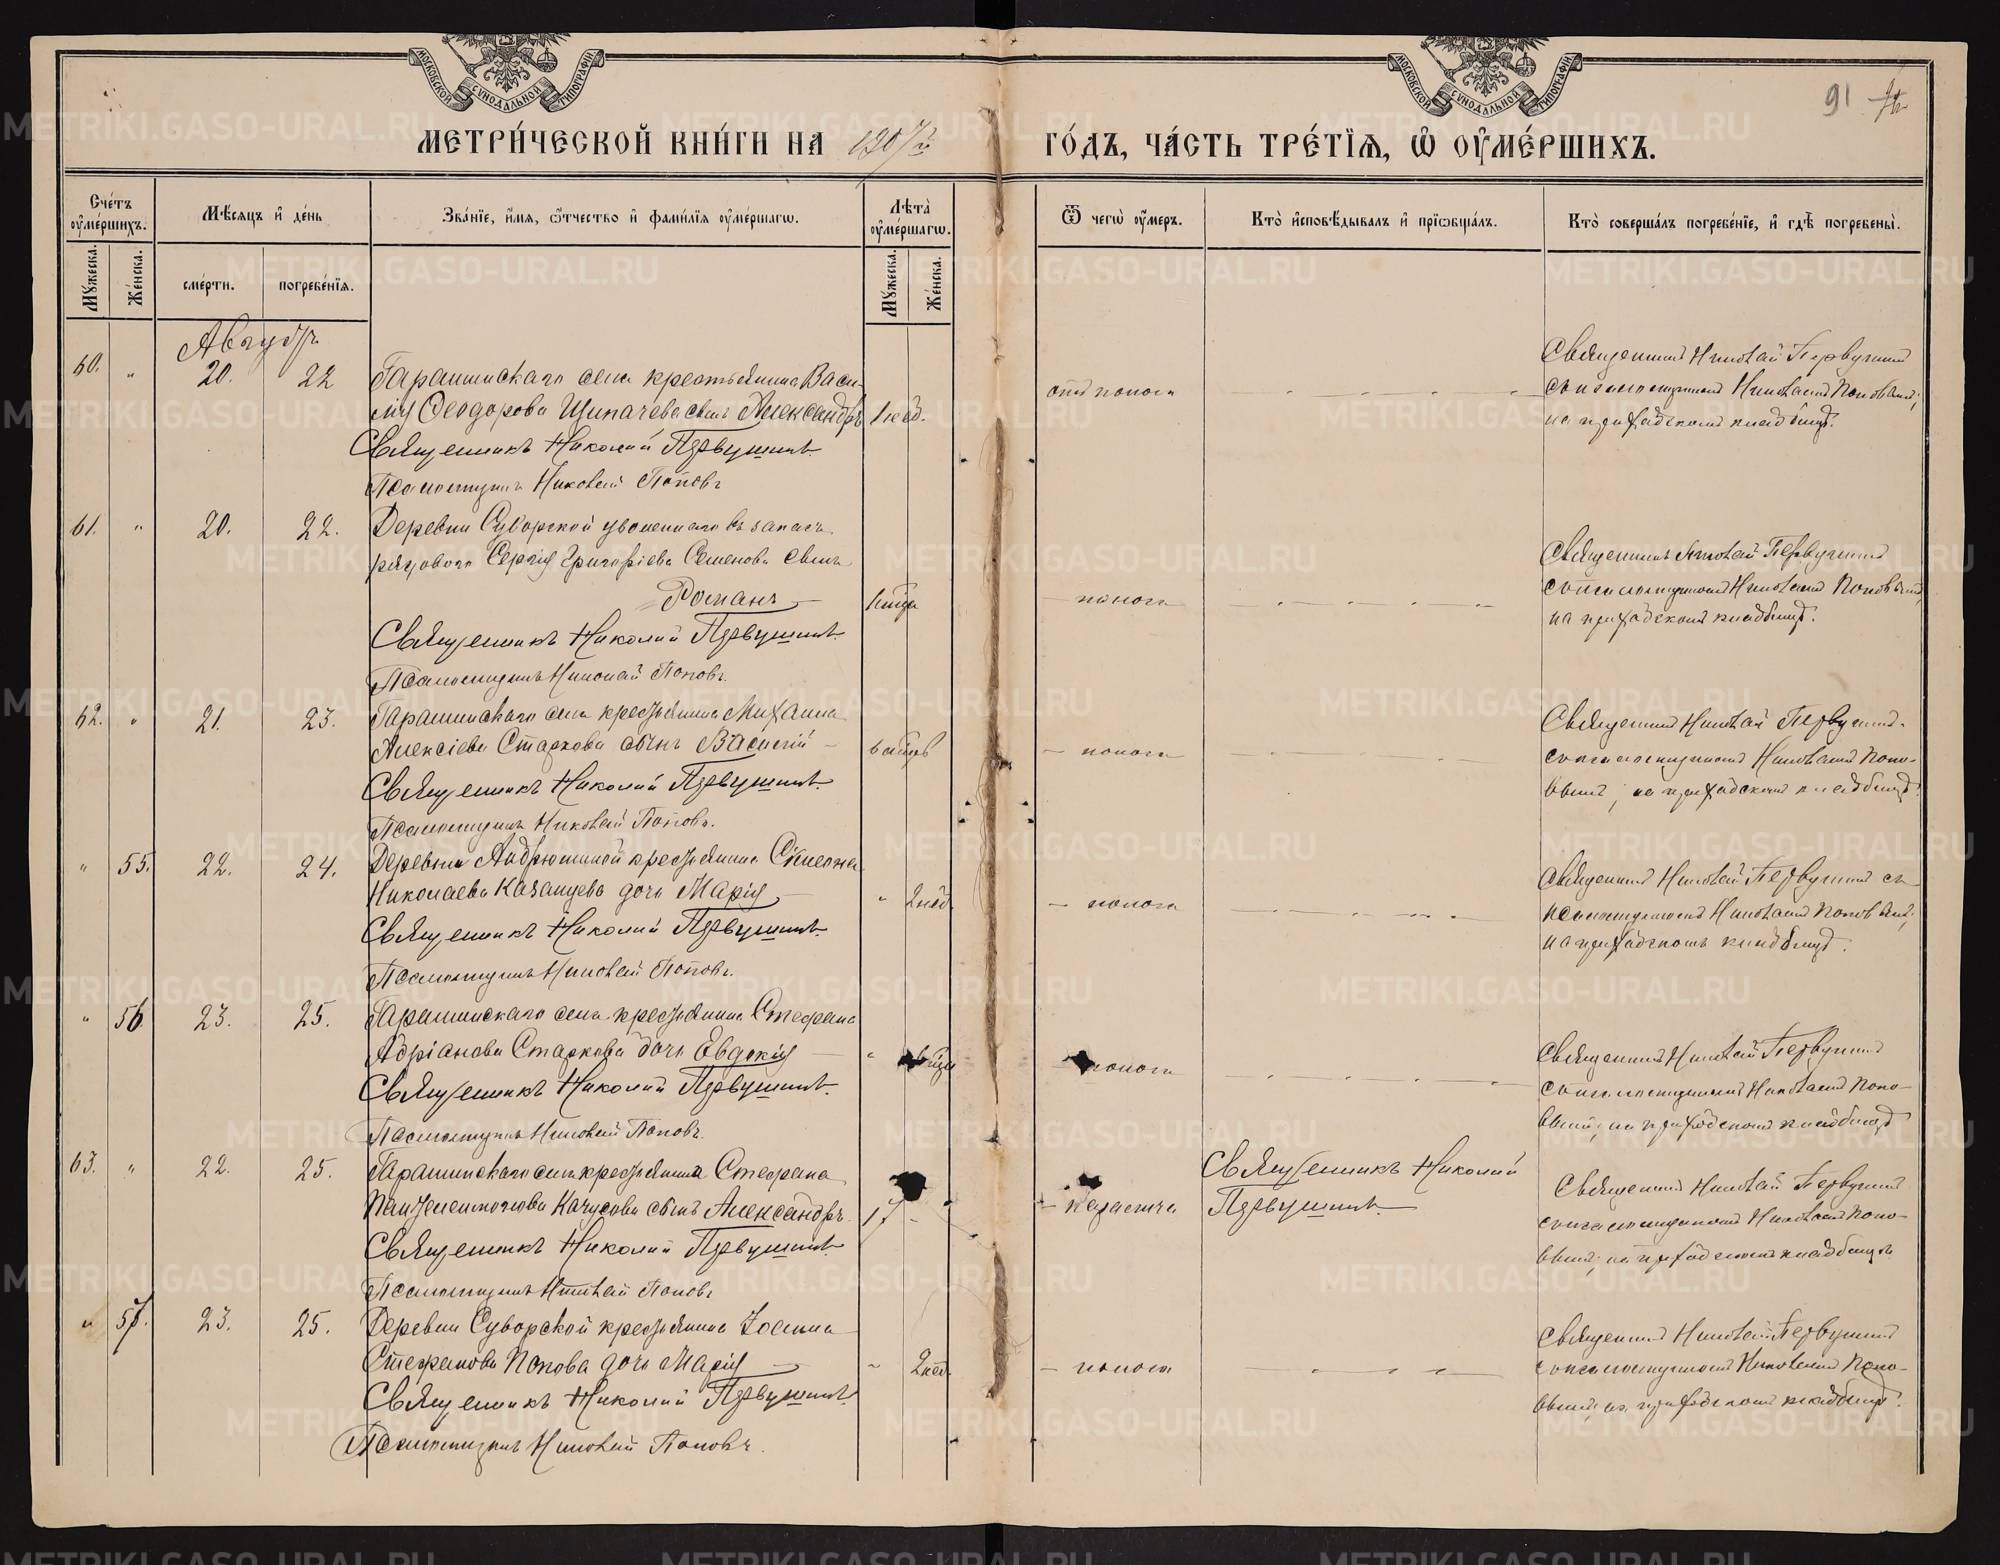 МОСКОВСКОЙ СѴНОДАЛЬНОЙ ТИПОГРАФІИ
МОСКОВСКОЙ СѴНОДАЛЬНОЙ ТИПОГРАФІИ
91
МЕТРИ́ЧЕСКОЙ КНИ́ГИ НА 1907й ГО́ДЪ, ЧА́СТЬ ТРЕ́ТІѦ, Ѡ҆ ОУ҆МЕ́РШИХЪ.
Сче́тъ оу҆ме́ршихъ.
Мѣ́сѧцъ и҆ де́нь
Зва́нїе, и҆́мѧ, ѻ҆́тчество и҆ фами́лїѧ оу҆ме́ршагѡ.
Лѣта̀ оу҆ме́ршагѡ.
Ѿ чегѡ̀ оу҆́меръ.
Кто̀ и҆сповѣ́дывалъ и҆ прїѡбща́лъ.
Кто̀ соверша́лъ погребе́нїе, и҆ гдѣ̀ погребены̀.
Мꙋ́жеска.
Же́нска.
сме́рти.
погребе́нїѧ.
Мꙋ́жеска.
Же́нска.
Августъ
60. " 20. 22 Гарашинскаго села крестьянина Васи-
лія Ѳеодорова Щипачева сынъ Александръ 1 нед. отъ поноса
Священникъ Николай Первушинъ
Псаломщикъ Николай Поповъ
Священникъ Николай Первушинъ
съ псаломщикомъ Николаемъ Поповымъ;
на приходскомъ кладбищѣ.
61. " 20. 22. Деревни Суворской уволеннаго въ запасъ
рядового Сергія Григоріева Семенова сынъ
Романъ — поноса
Священникъ Николай Первушинъ
Псаломщикъ Николай Поповъ.
Священникъ Николай Первушинъ
съ псаломщикомъ Николаемъ Поповымъ,
на приходскомъ кладбищѣ.
62. " 21. 23. Гарашинскаго села крестьянина Михаила
Алексіева Старкова сынъ Василій — поноса
Священникъ Николай Первушинъ
Псаломщикъ Николай Поповъ.
Священникъ Николай Первушинъ
съ псаломщикомъ Николаемъ Попо-
вымъ, на приходскомъ кладбищѣ.
" 55. 22. 24. Деревни Андрюшиной крестьянина
Николаева Казанцева дочь Марія " 2 нед. — поноса
Священникъ Николай Первушинъ
Псаломщикъ Николай Поповъ.
Священникъ Николай Первушинъ съ
псаломщикомъ Николаемъ Поповымъ;
на приходскомъ кладбищѣ.
" 56. 23. 25. Гарашинскаго села крестьянина Стефана
Адріанова Старкова дочь Евдокія " — поноса
Священникъ Николай Первушинъ
Псаломщикъ Николай Поповъ.
Священникъ Николай Первушинъ
съ псаломщикомъ Николаемъ Попо-
вымъ; на приходскомъ кладбищѣ
63. " 22. 25. Гарашинскаго села крестьянина Стефана
сынъ Александръ 17 -
Священникъ Николай Первушинъ
Псаломщикъ Николай Поповъ
Священникъ Николай
Первушинъ
Священникъ Николай Первушинъ
съ псаломщикомъ Николаемъ Попо-
вымъ; на приходскомъ кладбищѣ
" 57. 23. 25. Деревни Суворской крестьянина Іоанна
Стефанова Попова дочь Марія " 2 нед. — поноса
Священникъ Николай Первушинъ
Псаломщикъ Николай Поповъ.
Священникъ Николай Первушинъ
съ псаломщикомъ Николаемъ Попо-
вымъ; на приходскомъ кладбищѣ.
METRIKI.GASO-URAL.RU